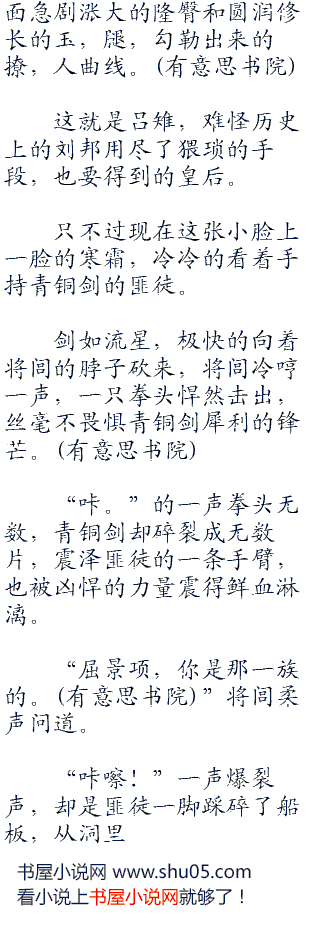 面急剧涨大的隆臀和圆润修
长的玉，腿，勾勒出来的
撩，人曲线。(有意思书院)
这就是吕雉，难怪历史
上的刘邦用尽了猥琐的手
段，也要得到的皇后。
只不过现在这张小脸上
一脸的寒霜，冷冷的看着手
持青铜剑的匪徒。
剑如流星，极快的向着
将闾的脖子砍来，将闾冷哼
一声，一只拳头悍然击出，
丝毫不畏惧青铜剑犀利的锋
芒。(有意思书院)
“咔。”的一声拳头无
数，青铜剑却碎裂成无数
片，震泽匪徒的一条手臂，
也被凶悍的力量震得鲜血淋
漓。
“屈景项，你是那一族
的。(有意思书院)”将闾柔
声问道。
“咔嚓！”一声爆裂
声，却是匪徒一脚踩碎了船
板，从洞里
书屋小说网 www.shu05.com
看小说上书屋小说网就够了！